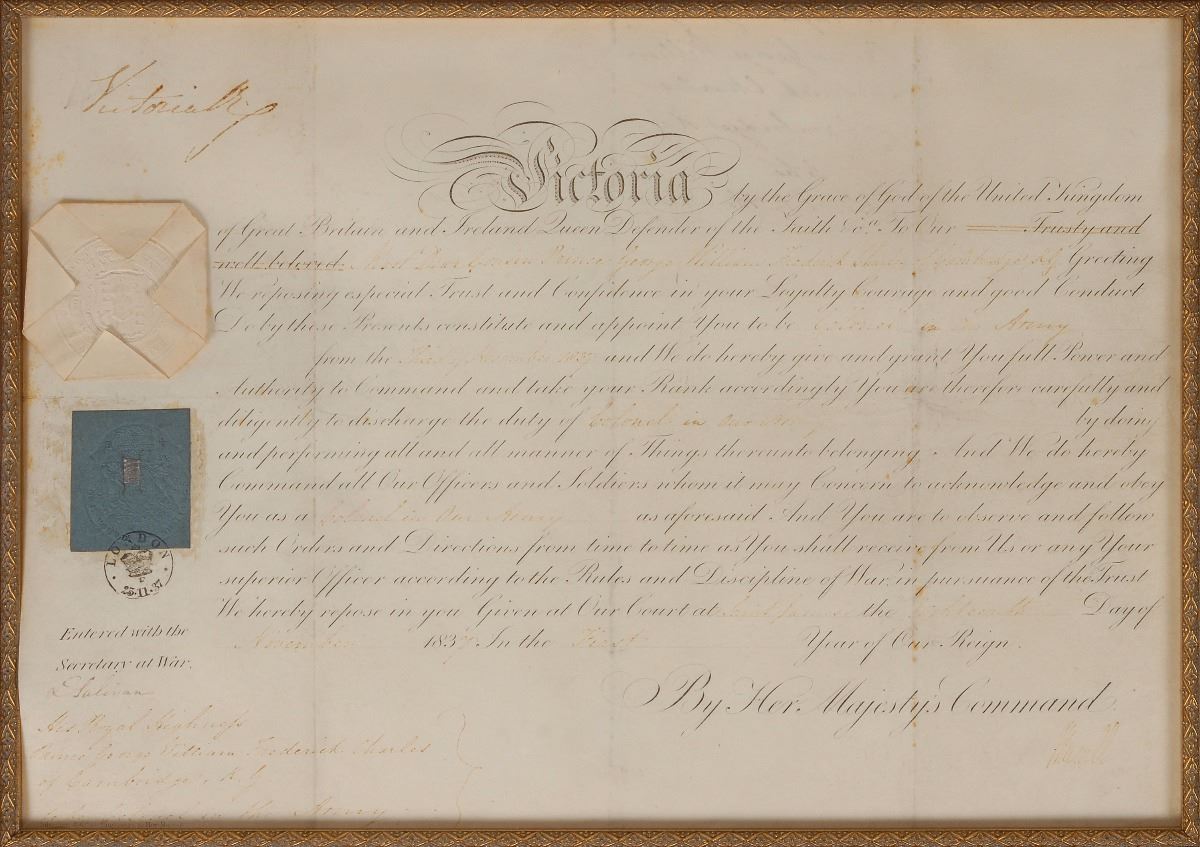 Victoria R
Victoria by the Grace of God of the United Kingdom
of Great Britain and Ireland Queen Defender of the Faith &c.a To Our Trusty and
well beloved Most Dear Cousin Prince George William Frederick Charles of Cambridge KG Greeting
We reposing especial Trust and Confidence in your Loyalty Courage and good Conduct
Do by these Presents constitute and appoint You to be Colonel in Our Army
from the Third of November 1837 and We do hereby give and grant You full Power and
Authority to Command and take your Rank accordingly You are therefore carefully and
diligently to discharge the duty of Colonel in Our Army by doing
and performing all and all manner of Things thereunto belonging And We do hereby
Command all Our Officers and Soldiers whom it may Concern to acknowledge and obey
You as a Colonel in Our Army as aforesaid And You are to observe and follow
such Orders and Directions from time to time as You shall receive from Us or any Your
superior Officer according to the Rules and Discipline of War in pursuance of the Trust
We hereby repose in you Given at Our Court at Saint James's the eighteenth Day of
November 1837 In the First Year of Our Reign.
By Her Majesty's Command
LONDON
25·11·37
Entered with the
Secretary at War.
L Sulivan
His Royal Highness
Prince George William Frederick Charles
of Cambridge, K.G
Colonel in the Army